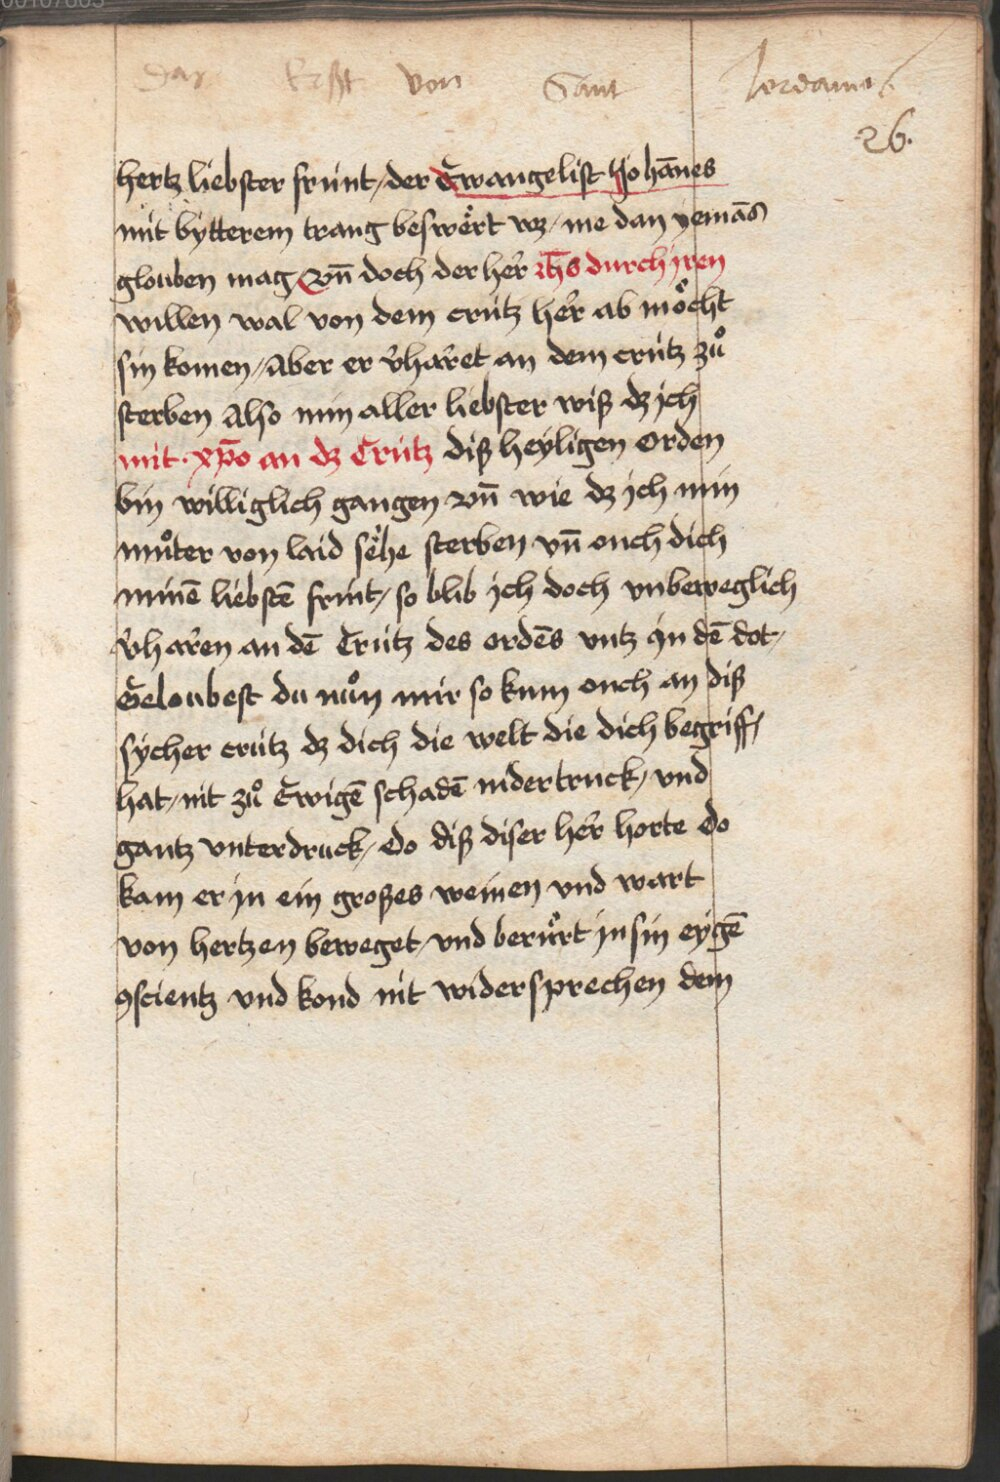 00107603
Das Erst von Sant Jordanus
26.
hertz liebster frúnt / der Ewangelist Johānes
mit bytterem trang beswert wz / me dan yemās
glouben mag / Vn̄ doch der her ih̄s durch jren
willen wal von dem crútz her ab moͤcht
sin komen / Aber er v̓haret an dem crútz zuͦ
sterben Also min aller liebster wiß dz jch
mit · xp̄o an dz Crútz diß heyligen orden
bin willigl̓ich gangen vn̄ wie dz jch min
muͦter von laid sehe sterben vn̄ ouch dich
minē liebstē frúnt / so blib jch doch vnbeweglich
v̓haren an dē Crútz des ordēs vntz jn dē dot /
Geloubest du nuͦn mir so kum ouch an diß
sycher crútz dz dich die welt die dich begriff /
hat / nit zuͦ Ewigē schadē nidertruck / vnd
gantz vnterdruck / do diß diser her horte do
kam er jn ein großes weinen vnd wart
von hertzen beweget / vnd beruͤrt jn sin eygē
ꝯscientz vnd kond nit widersprechen dem